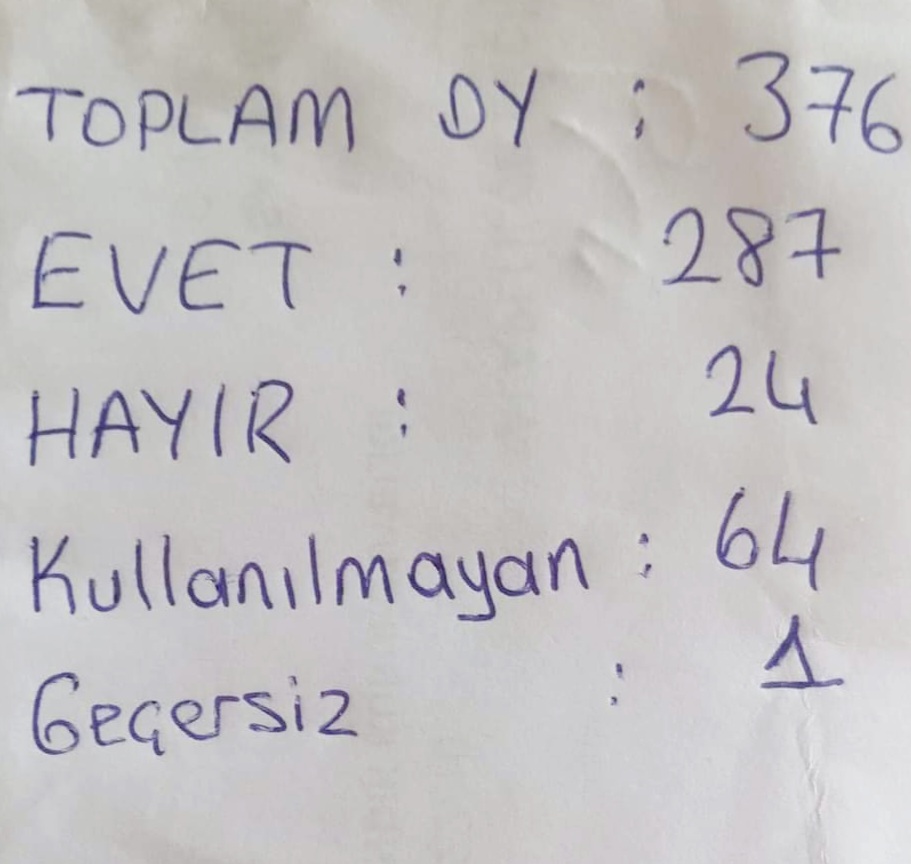 TOPLAM OY : 376
EVET : 287
HAYIR : 24
Kullanılmayan : 64
Geçersiz : 1